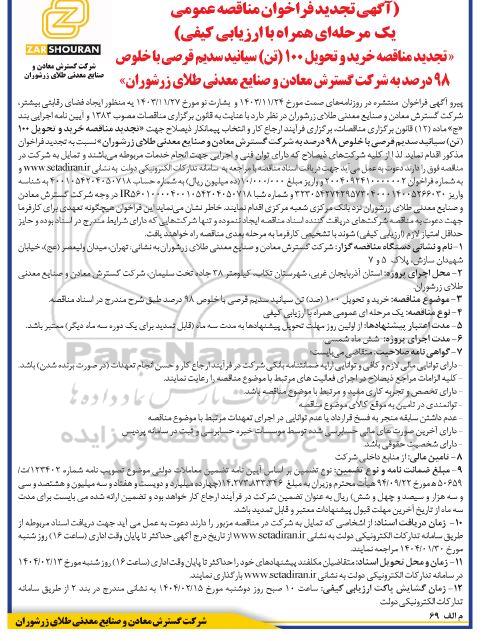 (آگهی تجدید فراخوان مناقصه عمومی
یک مرحله‌ای همراه با ارزیابی کیفی)
ZAR SHOURAN
شرکت گسترش معادن و
صنایع معدنی طلای زرشوران
«تجدید مناقصه خرید و تحویل ۱۰۰ (تن) سیانید سدیم قرصی با خلوص
۹۸ درصد به شرکت گسترش معادن و صنایع معدنی طلای زرشوران»
پیرو آگهی فراخوان منتشره در روزنامه‌های صمت مورخ ۱۴۰۳/۱۱/۲۴ و بشارت نو مورخ ۱۴۰۳/۱۱/۲۷ به منظور ایجاد فضای رقابتی بیشتر،
شرکت گسترش معادن و صنایع معدنی طلای زرشوران در نظر دارد با عنایت به قانون برگزاری مناقصات مصوب ۱۳۸۳ و آیین نامه اجرایی بند
«ج» ماده (۱۲) قانون برگزاری مناقصات، برگزاری فرآیند ارجاع کار و انتخاب پیمانکار ذیصلاح جهت «تجدید مناقصه خرید و تحویل ۱۰۰
(تن) سیانید سدیم قرصی با خلوص ۹۸ درصد به شرکت گسترش معادن و صنایع معدنی طلای زرشوران» نسبت به تجدید فراخوان
مذکور اقدام نماید. لذا از کلیه شرکت‌های ذیصلاح که دارای توان فنی و اجرایی جهت انجام خدمات مربوطه می‌باشند و تمایل به شرکت در
مناقصه فوق را دارند دعوت به عمل می‌آید جهت دریافت اسناد مناقصه با مراجعه به سامانه تدارکات الکترونیکی دولت به نشانی www.setadiran.ir و
به شماره فراخوان و واریز مبلغ ۱۰/۰۰۰/۰۰۰ (ده میلیون ریال) به شماره حساب ۴۰۰۱۰۵۴۲۰۴۰۵۰۷۱۸ به شناسه
واریز و شماره شبا در وجه شرکت گسترش معادن
و صنایع معدنی طلای زرشوران نزد بانک مرکزی شعبه مرکزی اقدام نمایند. خاطر نشان می‌نماید این فراخوان هیچگونه تعهدی برای کارفرما
جهت دعوت به مناقصه شرکت‌های دریافت کننده اسناد مناقصه ایجاد ننموده و تنها شرکت‌هایی که دارای شرایط مندرج در اسناد بوده و حایز
حداقل امتیاز لازم (ارزیابی کیفی) شوند با تشخیص کارفرما به مرحله بعدی مناقصه راه خواهند یافت.
۱- نام و نشانی دستگاه مناقصه گزار: شرکت گسترش معادن و صنایع معدنی طلای زرشوران به نشانی: تهران، میدان ولیعصر (عج)، خیابان
شهیدان سازش، پلاک ۵ و ۷
۲- محل اجرای پروژه: استان آذربایجان غربی، شهرستان تکاب، کیلومتر ۳۸ جاده تخت سلیمان، شرکت گسترش معادن و صنایع معدنی
طلای زرشوران.
۳- موضوع مناقصه: خرید و تحویل ۱۰۰ (صد) تن سیانید سدیم قرصی با خلوص ۹۸ درصد طبق شرح مندرج در اسناد مناقصه.
۴- نوع مناقصه: یک مرحله ای عمومی همراه با ارزیابی کیفی
۵- مدت اعتبار پیشنهادها: از اولین روز مهلت تحویل پیشنهادها به مدت سه ماه (قابل تمدید برای یک دوره سه ماه دیگر) معتبر باشد.
۶- مدت اجرای پروژه: شش ماه شمسی
۷- گواهی نامه صلاحیت: متقاضی می‌بایست:
- دارای توانایی مالی لازم و کافی و توانایی ارایه ضمانتنامه بانکی شرکت در فرآیند ارجاع کار و حسن انجام تعهدات (در صورت برنده شدن) باشد.
- کلیه الزامات مراجع ذیصلاح در اجرای فعالیت های مرتبط با موضوع مناقصه را رعایت نمایند.
- دارای تخصص و تجربه کاری مفید و مرتبط با موضوع مناقصه باشد.
- توانمندی در تامین به موقع کالای موضوع مناقصه
- عدم داشتن سابقه منجر به فسخ قرارداد یا عدم توانایی در اجرای تعهدات مرتبط با موضوع مناقصه
- دارای آخرین صورت های مالی حسابرسی شده توسط موسسات خبره حسابرسی و ثبت در سامانه پردیس
- دارای شخصیت حقوقی باشد.
۸- تامین مالی: از منابع داخلی شرکت
۹- مبلغ ضمانت نامه و نوع تضمین: نوع تضمین بر اساس آیین نامه تضمین معاملات دولتی موضوع تصویب نامه شماره ۱۲۳۴۰۲/ت
۵۰۶۵۹ ه مورخ ۹۴/۰۹/۲۲ هیأت محترم وزیران به مبلغ (چهارده میلیارد و دویست و هفتاد و سه میلیون و هشتصد و سی
و سه هزار و سیصد و چهل و شش) ریال به عنوان تضمین شرکت در فرآیند ارجاع کار خواهد بود و تضمین ارائه شده می بایست برای مدت
سه ماه از تاریخ آخرین مهلت قبول پیشنهادات معتبر و قابل تمدید باشد.
۱۰- زمان دریافت اسناد: از اشخاصی که تمایل به شرکت در مناقصه مزبور را دارند دعوت به عمل می آید جهت دریافت اسناد مربوطه از
طریق سامانه تدارکات الکترونیکی دولت به نشانی www.setadiran.ir از تاریخ درج آگهی حداکثر تا پایان وقت اداری (ساعت ۱۶) روز شنبه
مورخ ۱۴۰۴/۰۱/۳۰ مراجعه نمایند.
۱۱- زمان و محل تحویل اسناد: متقاضیان مکلفند پیشنهادهای خود را حداکثر تا پایان وقت اداری (ساعت ۱۶) روز شنبه مورخ ۱۴۰۴/۰۲/۱۳
در سامانه تدارکات الکترونیکی دولت به نشانی www.setadiran.ir بارگذاری نمایند.
۱۲- زمان گشایش پاکت ارزیابی کیفی: ساعت ۱۰ صبح روز دوشنبه مورخ ۱۴۰۴/۰۲/۱۵ به نشانی مندرج در بند ۲ از طریق سامانه
تدارکات الکترونیکی دولت
م الف ۶۹
شرکت گسترش معادن و صنایع معدنی طلای زرشوران